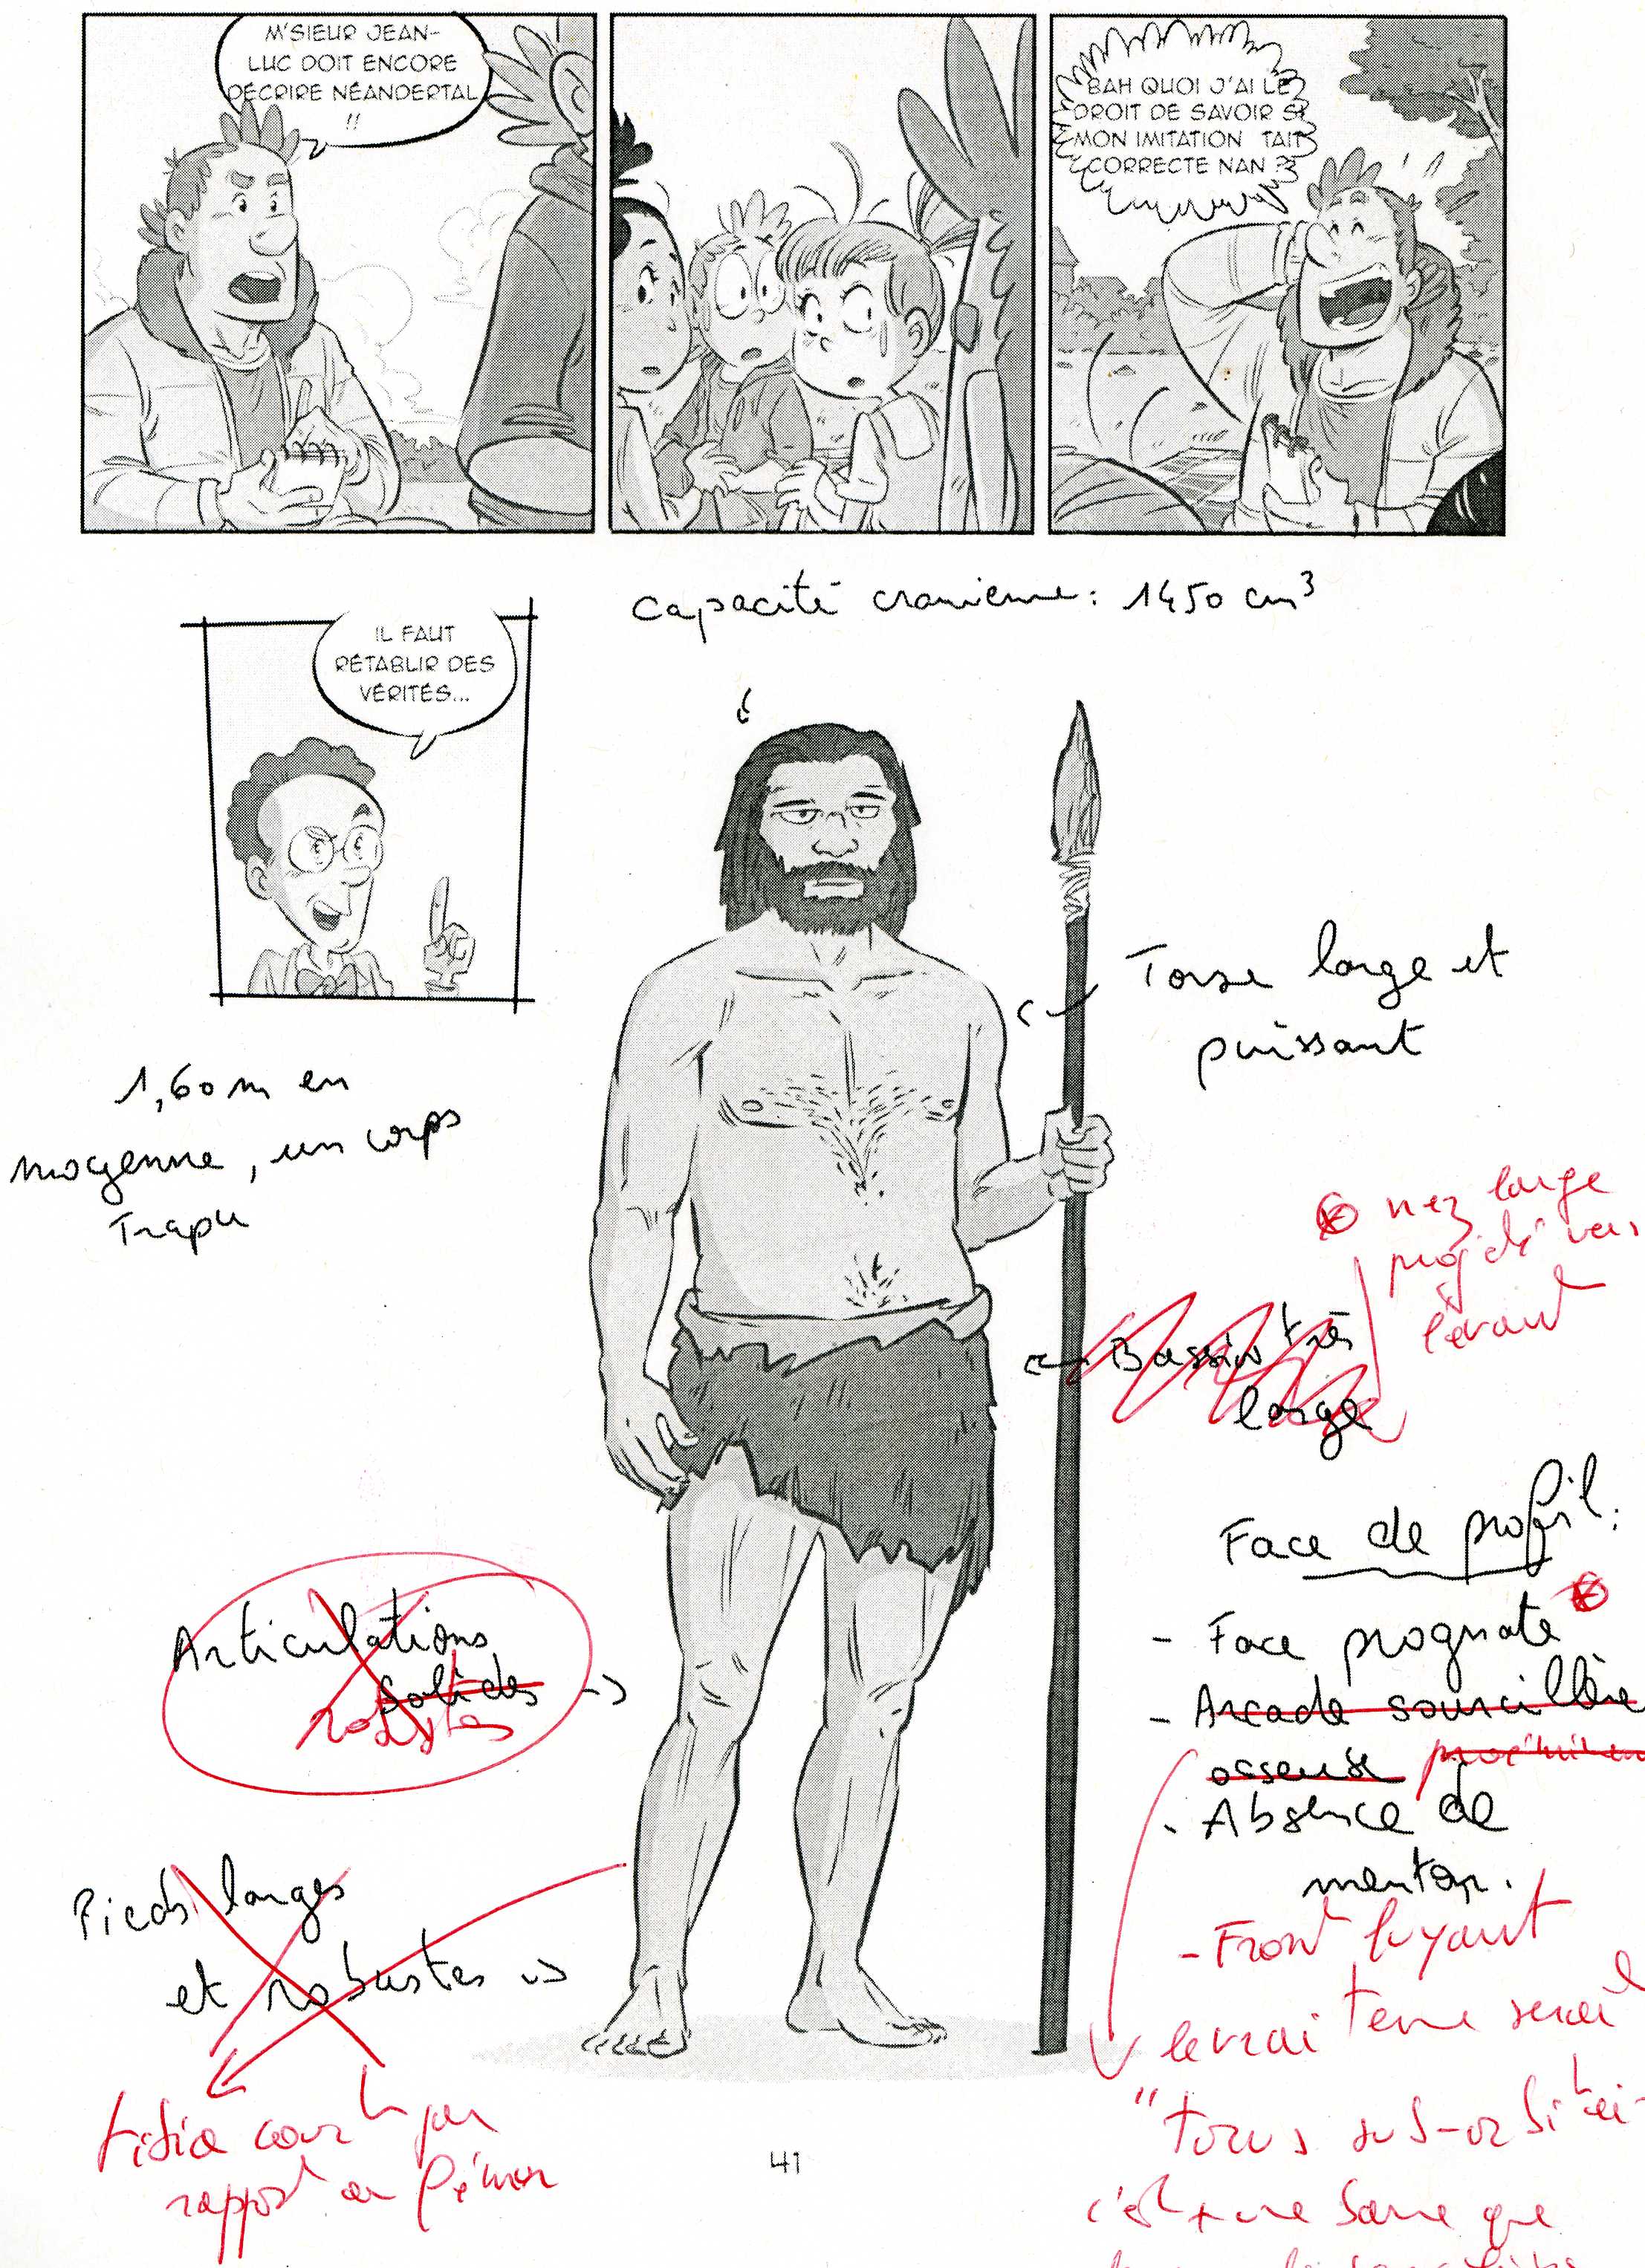 M'SIEUR JEAN-
LUC DOIT ENCORE
DÉCRIRE NÉANDERTAL
!!
BAH QUOI J'AI LE
DROIT DE SAVOIR SI
MON IMITATION TAIT
CORRECTE NAN ??
Capacité cranienne : 1450 cm³
IL FAUT
RÉTABLIR DES
VÉRITÉS...
Torse large et
puissant
1,60 m en
moyenne, un corps
Trapu
nez large
projeté vers
l'avant
Bassin très
large
Face de profil :
- Face prognate
- Arcade sourcillère
osseuse
- Absence de
menton.
- Front fuyant
le vrai terme serait
"torus sus-orbitai-
c'est + une barre que
Articulations
solides
robustes
Pieds larges
et robustes
tibia court par
rapport au fémur
41